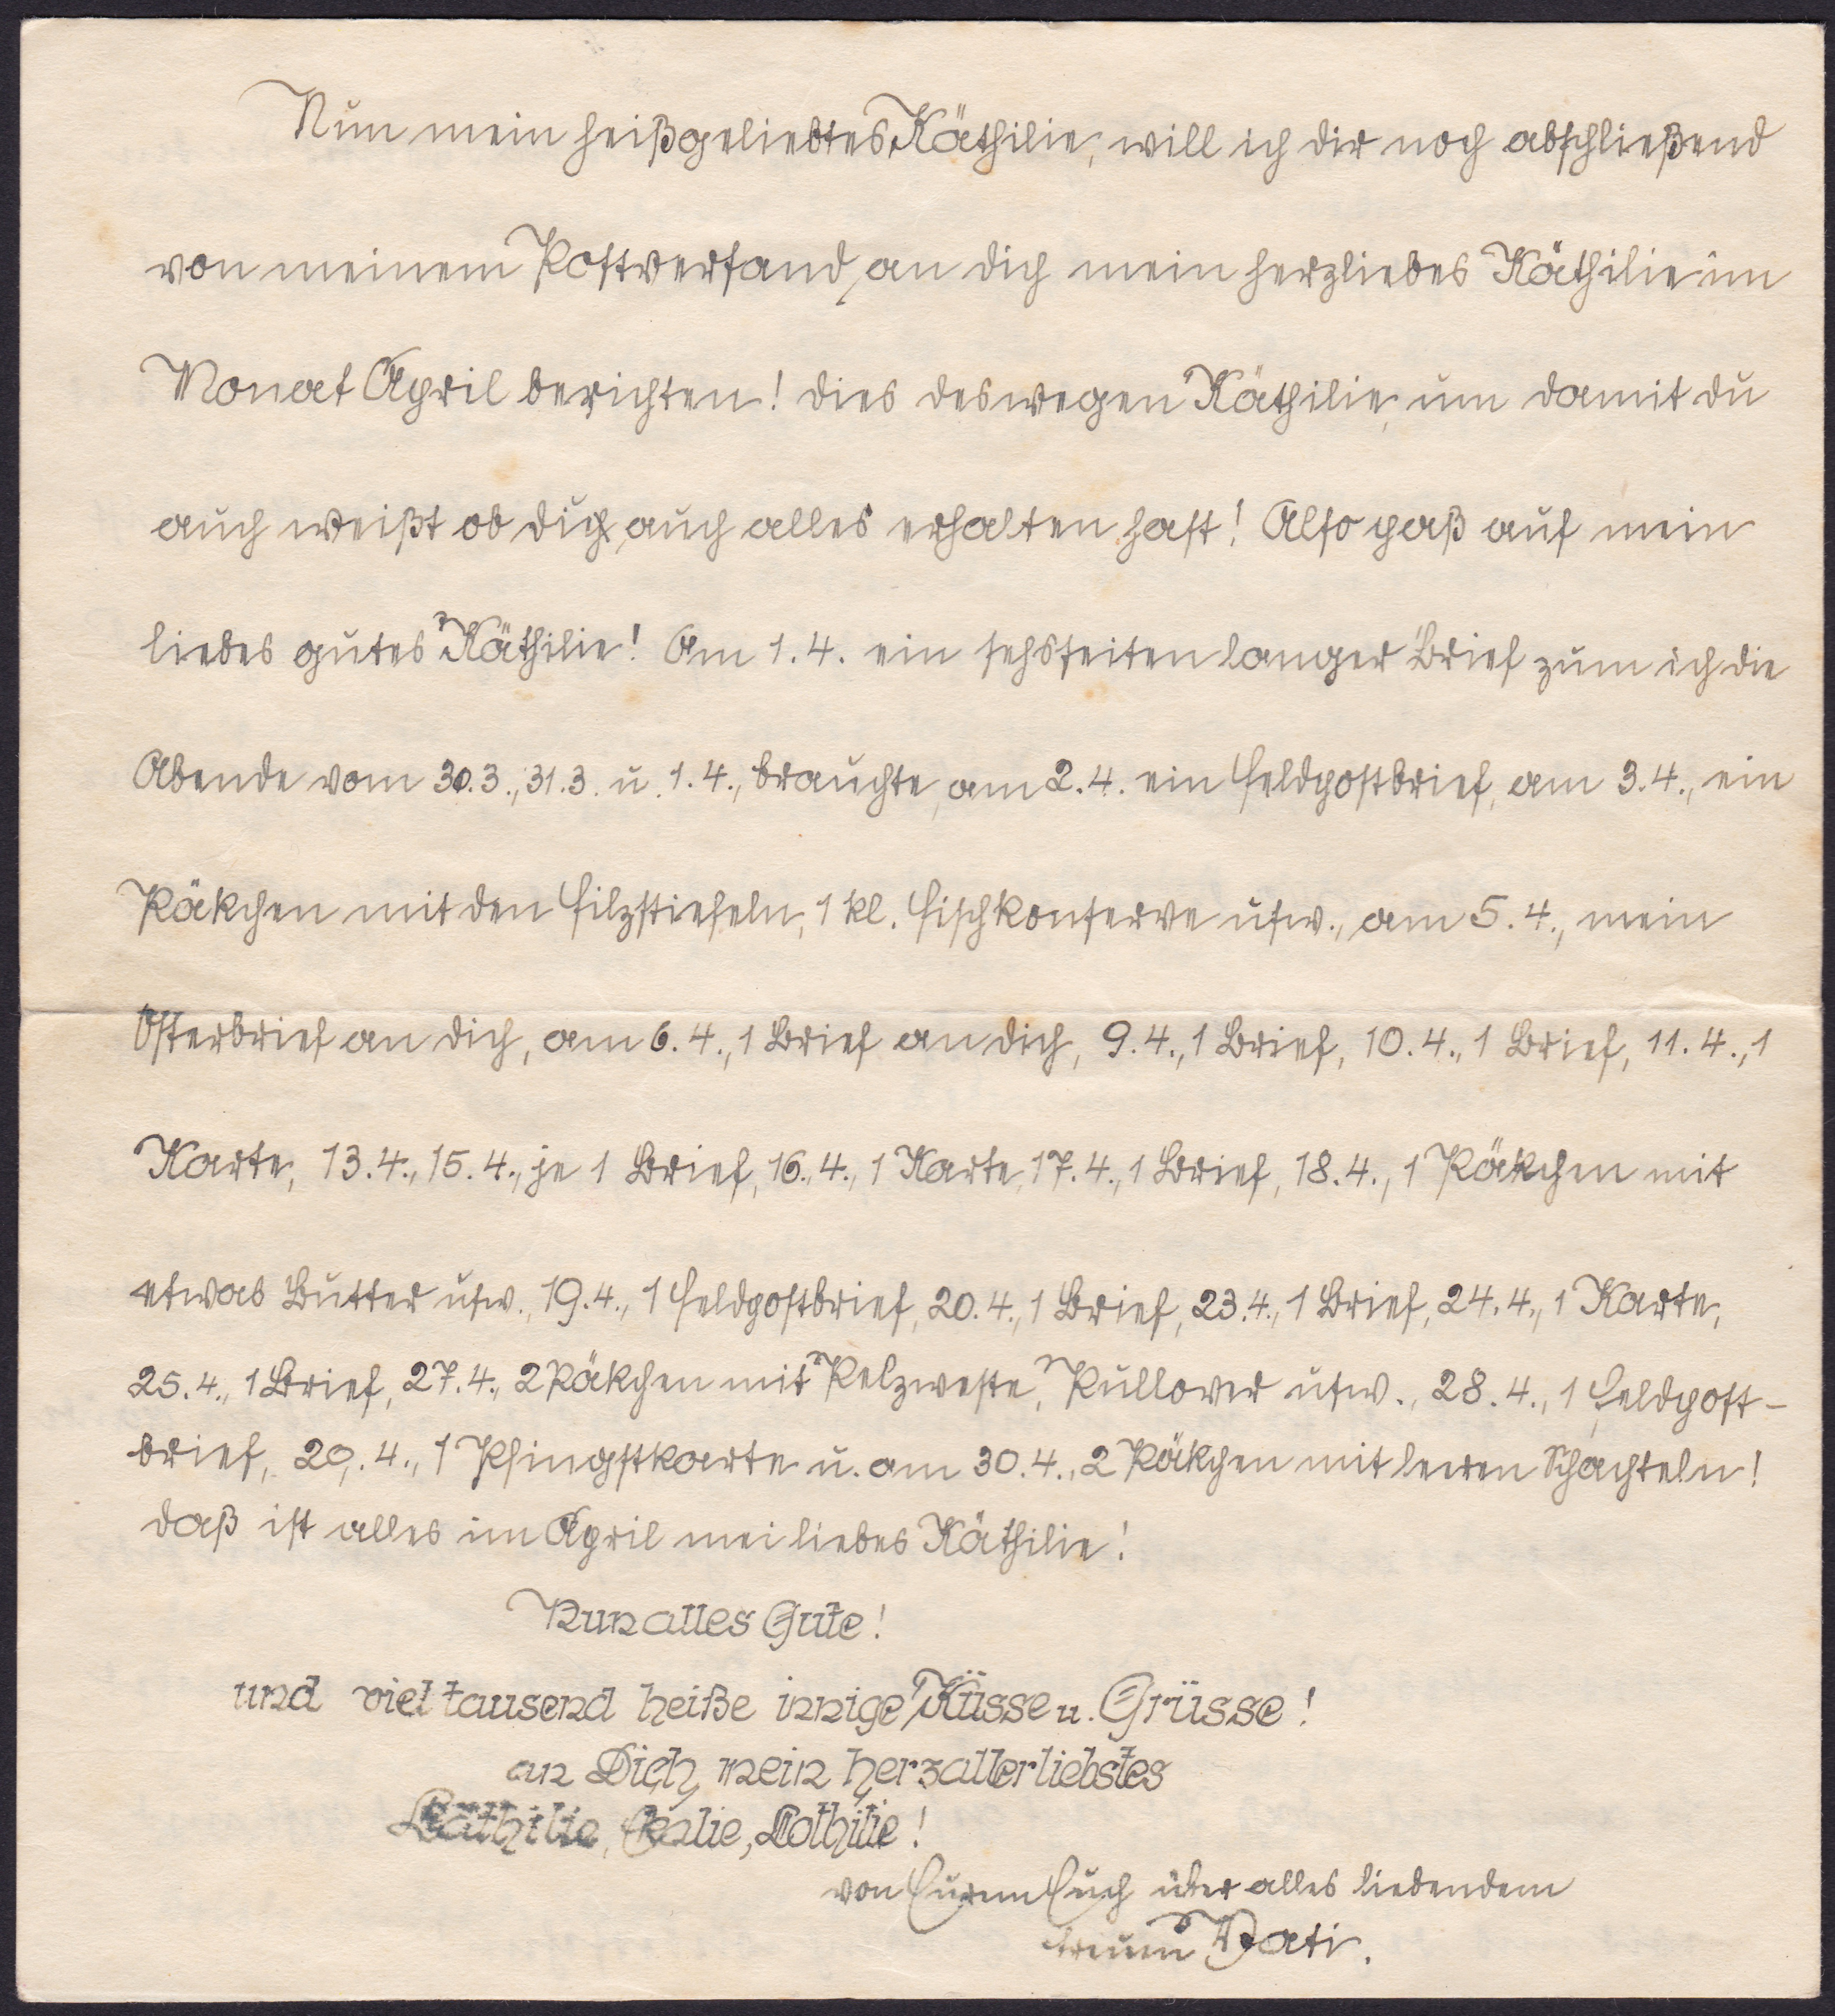 Nun mein heißgeliebtes Käthilie, will ich dir noch abschließend
von meinem Postversand, an dich mein herzliebes Käthilie im
Monat April berichten! dies deswegen Käthilie, um damit du
auch weißt ob dich auch alles erhalten hast! Also paß auf mein
liebes gutes Käthilie! Am 1.4. ein sehsseiten langer Brief zum ich die
Abende vom 30.3., 31.3. u. 1.4., brauchte, am 2.4. ein Feldpostbrief, am 3.4., ein
Päkchen mit den Filzstiefeln, 1 kl. Fischkonserve usw., am 5.4., mein
Osterbrief an dich, am 6.4., 1 Brief an dich, 9.4., 1 Brief, 10.4., 1 Brief, 11.4., 1
Karte, 13.4., 15.4., je 1 Brief, 16.,4., 1 Karte, 17.4., 1 Brief, 18.4., 1 Päkchen mit
etwas Butter usw., 19.4., 1 Feldpostbrief, 20.4., 1 Brief, 23.4., 1 Brief, 24.4., 1 Karte,
25.4., 1 Brief, 27.4., 2 Päkchen mit Pelzweste, Pullover usw., 28.4., 1 Feldpost-
brief, 29.4., 1 Pfingstkarte u. am 30.4., 2 Päkchen mit leeren Schachteln!
daß ist alles im April mei liebes Käthilie!
Nun alles Gute!
und viel tausend heiße innige Küsse u. Grüsse!
an Dich mein herzallerliebstes
Käthilie, Lothilie!
von Eurem Euch über alles liebendem
treuem Vati.